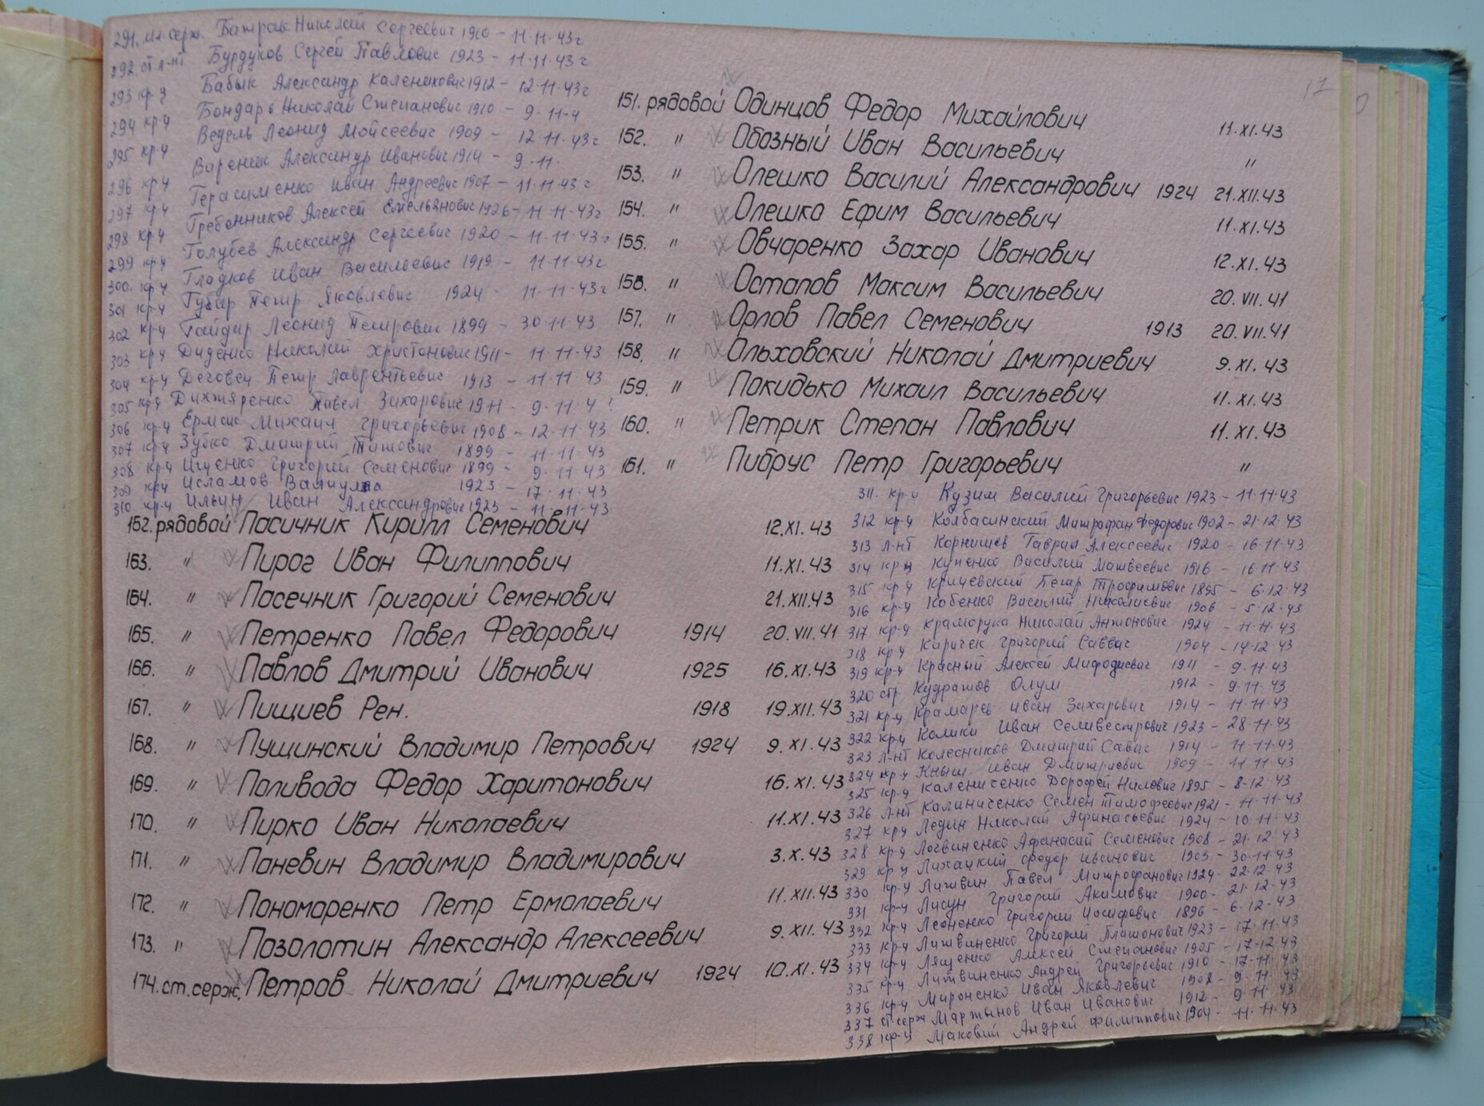 291. мл серж. Батрак Николай Сергеевич 1910 - 11.11.43г
292 ст л-нт Бурдуков Сергей Павлович 1923 - 11.11.43г
293 кр-ц Бабык Александр Каленикович 1912 - 12.11.43г
294 кр-ц Бондарь Николай Степанович 1910 - 9.11.4
295 кр-ц Ведель Леонид Мойсеевич 1909 - 12.11.43г
296 кр-ц Вареник Александр Иванович 1914 - 9.11.
297 кр-ц Герасименко Иван Андреевич 1907 - 11.11.43г
298 кр-ц Гребенников Алексей Емельянович 1926 - 11.11.43г
299 кр-ц Голубев Александр Сергеевич 1920 - 11.11.43г
300. кр-ц Гладков Иван Васильевич 1919 - 11.11.43г
301 кр-ц Губир Петр Яковлевич 1924 - 11.11.43г
302 кр-ц Гайдир Леонид Петрович 1899 - 30.11.43
303 кр-ц Диденко Николай Христонович 1911 - 11.11.43
304 кр-ц Деговец Петр Лаврентьевич 1913 - 11.11.43
305 кр-ц Дихтяренко Павел Захарович 1911 - 9.11.4
306 кр-ц Ермак Михаил Григорьевич 1908 - 12.11.43
307 кр-ц Зубко Дмитрий Титович 1899 - 11.11.43
308 кр-ц Ищенко Григорий Семенович 1899 - 9.11.43
309 кр-ц Исламов 1923 - 17.11.43
310 кр-ц Ильин Иван Александрович 1923 - 11.11.43
151. рядовой Одинцов Федор Михайлович 11.XI.43
152. " Обозный Иван Васильевич "
153. " Олешко Василий Александрович 1924 21.XII.43
154. " Олешко Ефим Васильевич 11.XI.43
155. " Овчаренко Захар Иванович 12.XI.43
156. " Остапов Максим Васильевич 20.VII.41
157. " Орлов Павел Семенович 1913 20.VII.41
158. " Ольховский Николай Дмитриевич 9.XI.43
159. " Покидько Михаил Васильевич 11.XI.43
160. " Петрик Степан Павлович 11.XI.43
161. " Пибрус Петр Григорьевич "
162. рядовой Пасичник Кирилл Семенович 12.XI.43
163. " Пирог Иван Филиппович 11.XI.43
164. " Пасечник Григорий Семенович 21.XII.43
165. " Петренко Павел Федорович 1914 20.VII.41
166. " Павлов Дмитрий Иванович 1925 16.XI.43
167. " Пищиев Рен. 1918 19.XII.43
168. " Пущинский Владимир Петрович 1924 9.XI.43
169. " Поливода Федор Харитонович 16.XI.43
170. " Пирко Иван Николаевич 11.XI.43
171. " Паневин Владимир Владимирович 3.X.43
172. " Пономаренко Петр Ермолаевич 11.XII.43
173. " Позолотин Александр Алексеевич 9.XII.43
174. ст. серж. Петров Николай Дмитриевич 1924 10.XI.43
311. кр-ц Кузим Василий Григорьевич 1923 - 11.11.43
312 кр-ц Колбасинский Митрофан Федорович 1902 - 21.12.43
313 л-нт Корнишев Гаврил Алексеевич 1920 - 16.11.43
314 кр-ц Купенко Василий Матвеевич 1916 - 16.11.43
315 кр-ц Кричевский Петр Трофимович 1895 - 6.12.43
316 кр-ц Кобенко Василий Николаевич 1906 - 5.12.43
317 кр-ц Краморука Николай Антонович 1924 - 11.11.43
318 кр-ц Киричек Григорий Саввич 1904 - 14.12.43
319 кр-ц Красный Алексей Мифодиевич 1911 - 9.11.43
320 стр Кудратов Олум 1912 - 9.11.43
321 кр-ц Крамарев Иван Захарович 1914 - 11.11.43
322 кр-ц Иван Селивестрович 1923 - 28.11.43
323 л-нт Колесников Дмитрий Савич 1914 - 11.11.43
324 кр-ц Кныш Иван Дмитриевич 1909 - 11.11.43
325 кр-ц Калениченко Дорофей Нилович 1895 - 8.12.43
326 л-нт Калиниченко Семен Тимофеевич 1921 - 11.11.43
327 кр-ц Ледин Николай Афанасьевич 1924 - 10.11.43
328 кр-ц Логвиненко Афанасий Семенович 1908 - 21.12.43
329 кр-ц Лихацкий Федор Иванович 1903 - 30.11.43
330 кр-ц Литвин Павел Митрофанович 1924 - 22.12.43
331 кр-ц Лисун Григорий Акимович 1900 - 21.12.43
332 кр-ц Леоненко Григорий Иосифович 1896 - 6.12.43
333 кр-ц Литвиненко Григорий Платонович 1923 - 17.11.43
334 кр-ц Лященко Алексей Степанович 1905 - 17.12.43
335 кр-ц Литвиненко Андрей Григорьевич 1910 - 17.11.43
336 кр-ц Мироненко Иван Яковлевич 1908 - 9.11.43
337 ст серж Мартынов Иван Иванович 1912 - 9.11.43
338 кр-ц Маковий Андрей Филиппович 1904 - 11.11.43